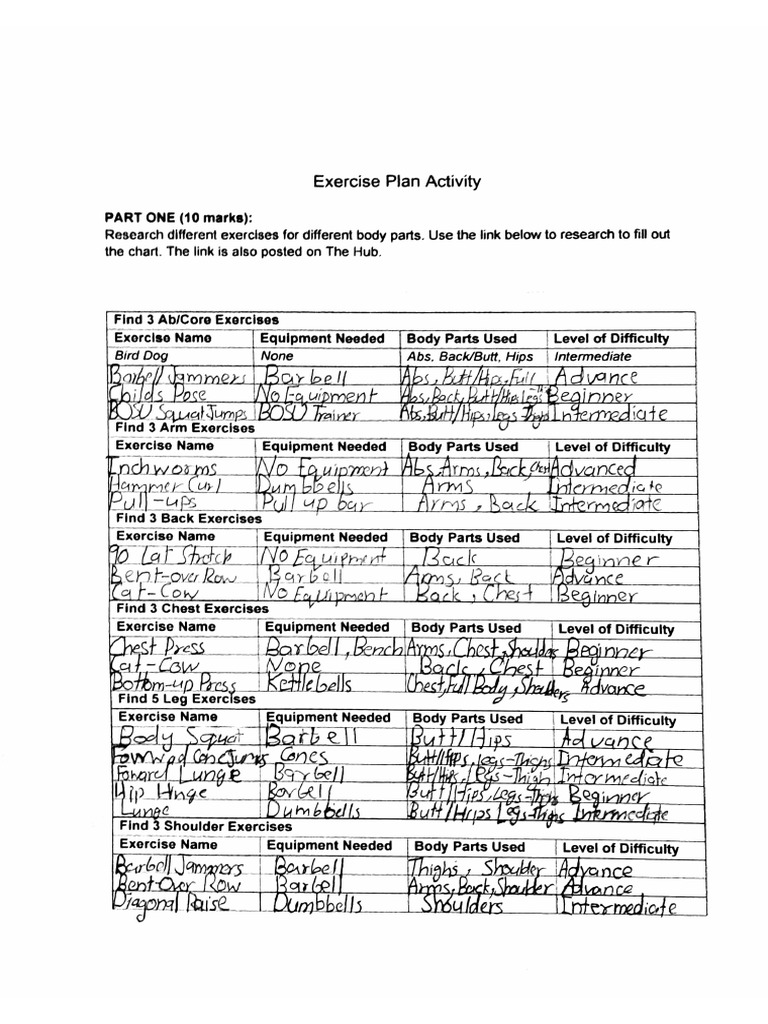 Exercise Plan Activity
PART ONE (10 marks):
Research different exercises for different body parts. Use the link below to research to fill out
the chart. The link is also posted on The Hub.
Find 3 Ab/Core Exercises
Exercise Name Equipment Needed Body Parts Used Level of Difficulty
Bird Dog None Abs, Back/Butt, Hips Intermediate
Barbell Jammers Barbell Abs, Butt/Hips, Full Advance
Childs Pose No Equipment Abs, Back, Butt/Hips Legs-Th Beginner
BOSU Squat Jumps BOSU Trainer Abs, Butt/Hips, legs Thighs Intermediate
Find 3 Arm Exercises
Exercise Name Equipment Needed Body Parts Used Level of Difficulty
Inchworms No Equipment Abs, Arms, Back, Chest Advanced
Hammer Curl Dumbbells Arms Intermediate
Pull-ups Pull up bar Arms, Back Intermediate
Find 3 Back Exercises
Exercise Name Equipment Needed Body Parts Used Level of Difficulty
90 Lat Stretch No Equipment Back Beginner
Bent-over Row Barbell Arms, Back Advance
Cat-Cow No Equipment Back, Chest Beginner
Find 3 Chest Exercises
Exercise Name Equipment Needed Body Parts Used Level of Difficulty
Chest Press Barbell, Bench Arms, Chest, Shoulders Beginner
Cat-Cow None Back, Chest Beginner
Bottom-up Press Kettlebells Chest, Full Body, Shoulders Advance
Find 5 Leg Exercises
Exercise Name Equipment Needed Body Parts Used Level of Difficulty
Body Squat Barbell Butt/Hips Advance
Cone Jumps Cones Butt/Hips, legs-Thighs Intermediate
Forward Lunge Barbell Butt/Hips, Legs-Thigh Intermediate
Hip Hinge Barbell Butt/Hips, Legs-Thighs Beginner
Lunge Dumbbells Butt/Hips Legs-Thighs Intermediate
Find 3 Shoulder Exercises
Exercise Name Equipment Needed Body Parts Used Level of Difficulty
Barbell Jammers Barbell Thighs, Shoulder Advance
Bent-Over Row Barbell Arms, Back, Shoulder Advance
Diagonal Raise Dumbbells Shoulders Intermediate